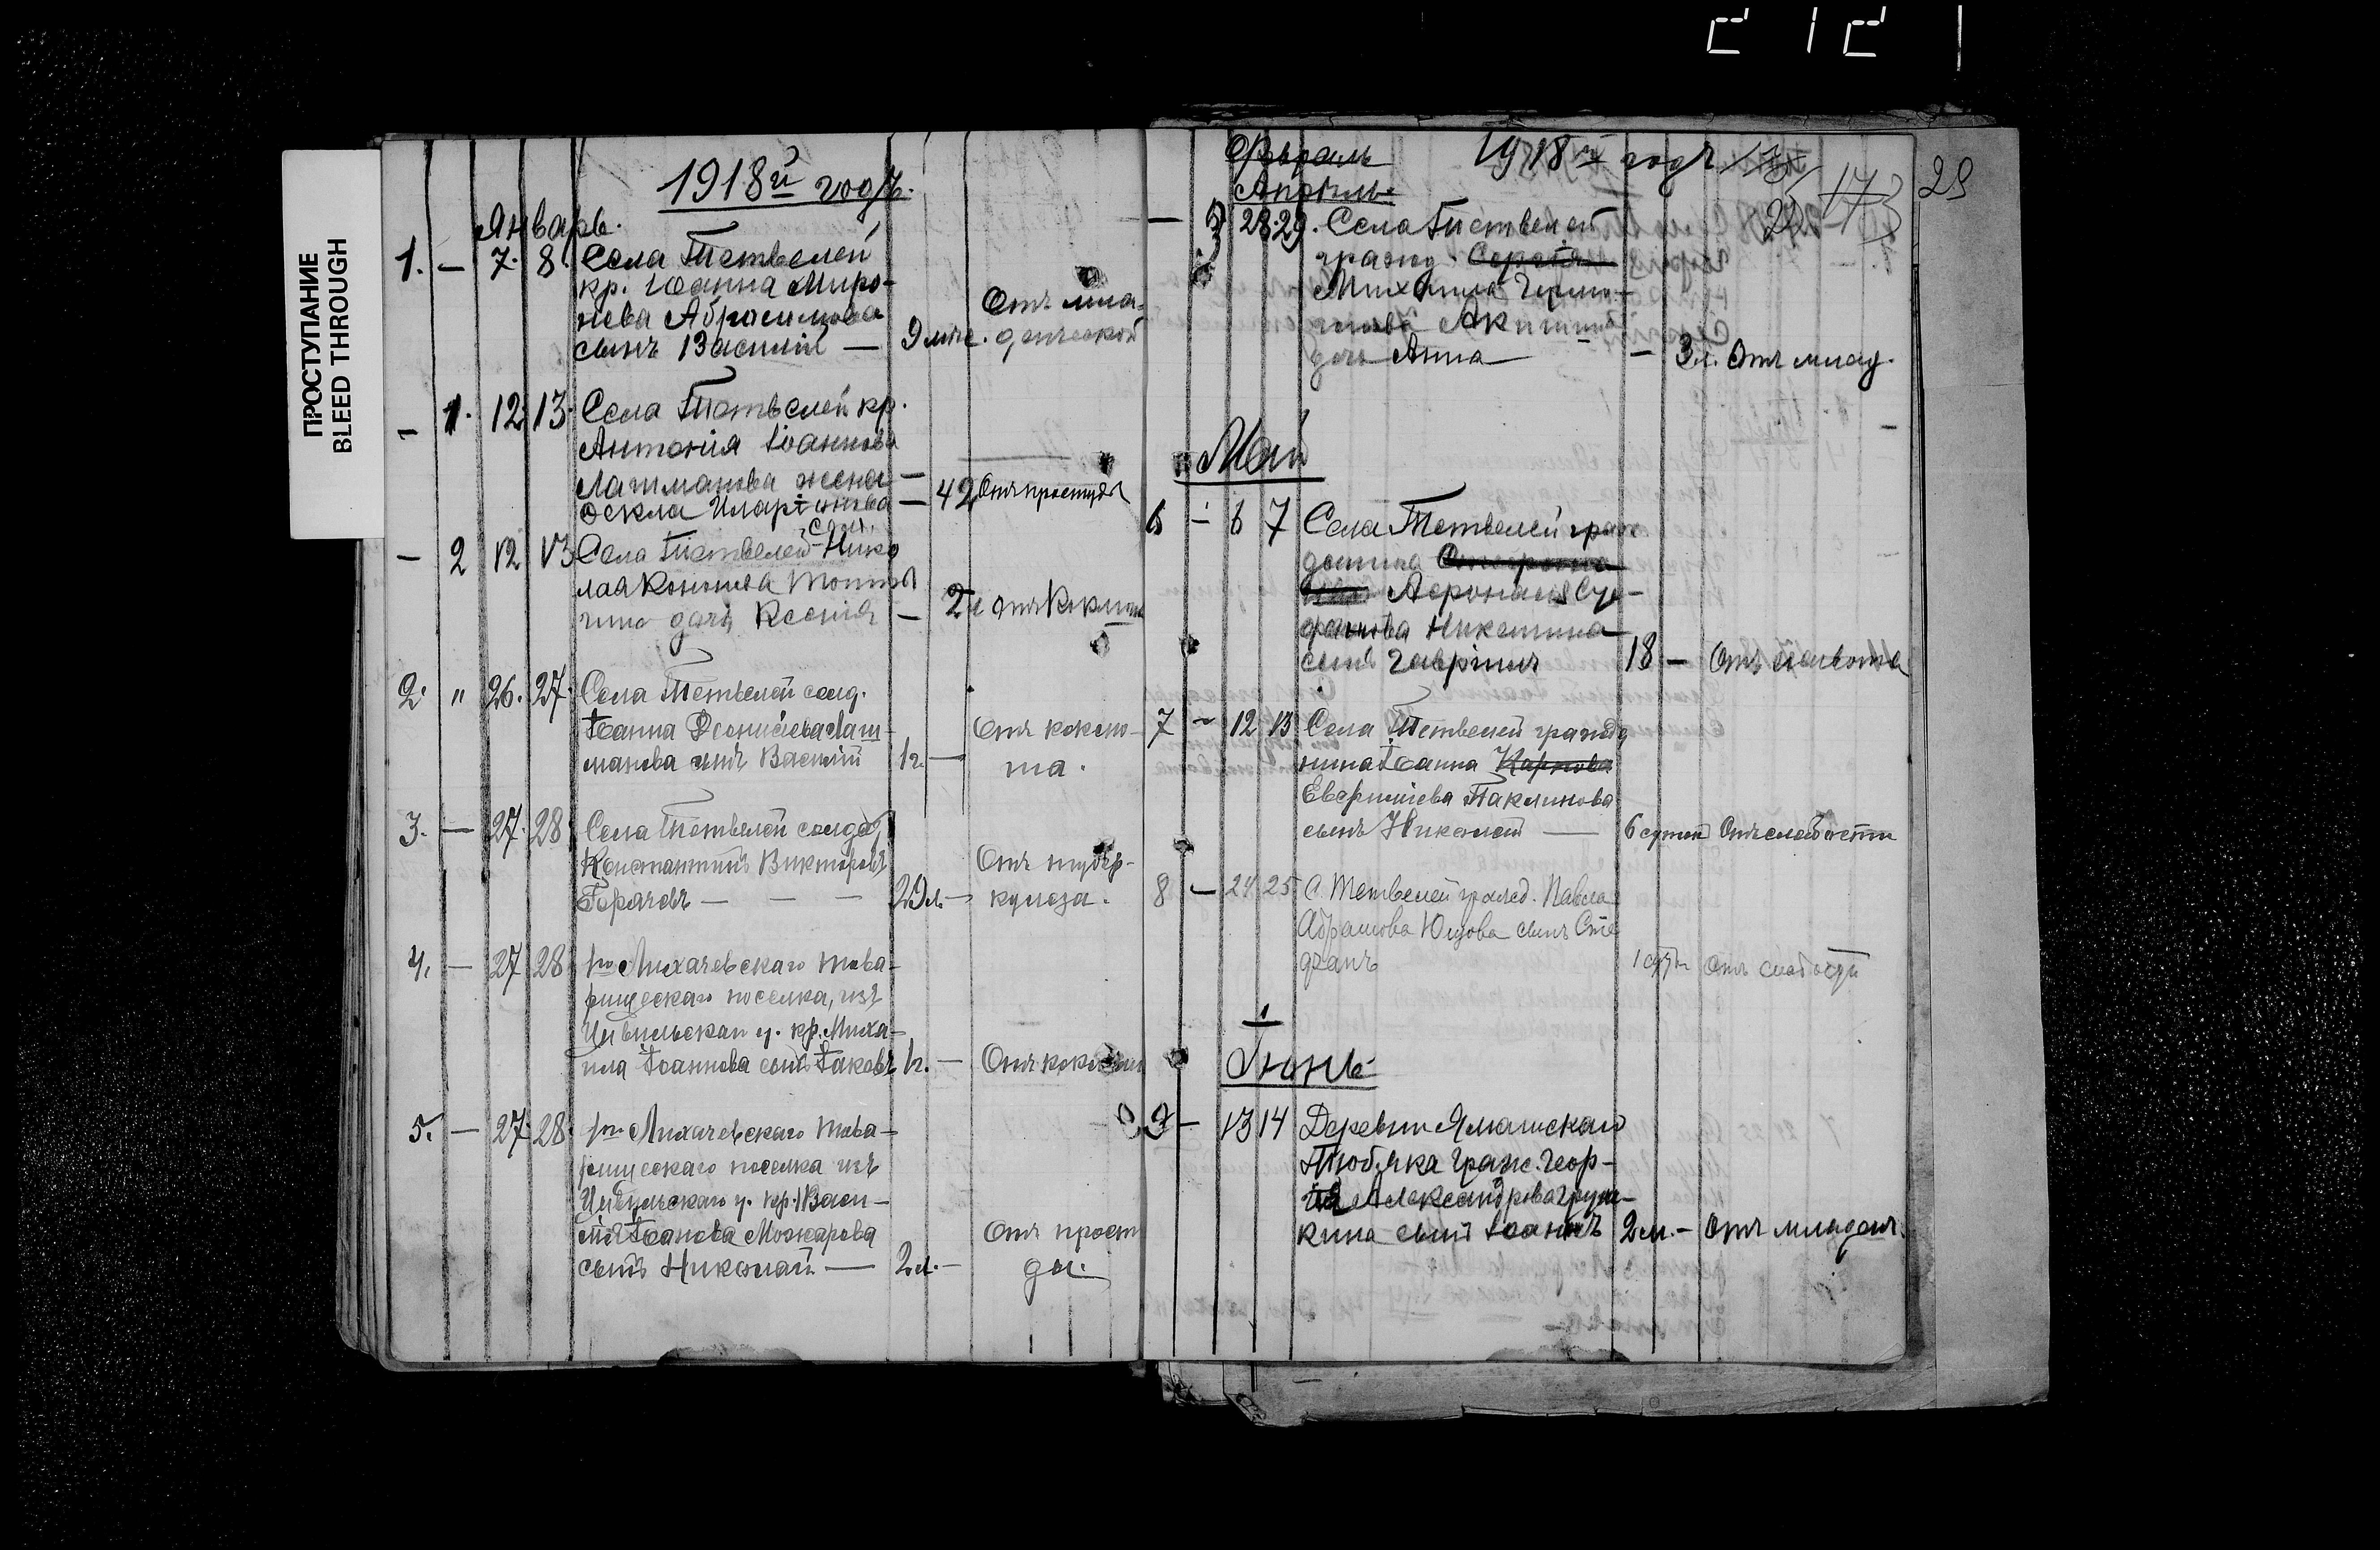 ПРОСТУПАНИЕ
BLEED THROUGH
1918й годъ.
Январь.
1. — 7. 8. Села Тетвелей
кр. Іоанна Миро-
нева Абросимова
сынъ Василій — 9 мѣс. Отъ мла-
денческой
— 1. 12 13. Села Тетвелей кр.
Антонія Іоаннова
Лашманова жена —
Ѳекла Иларіонова — 42 Отъ простуды
— 2 12 13 Села Тетвелей солд. Нико
лая
дочь Ксенія — 2 Отъ
2. " 26. 27. Села Тетвелей солд.
Іоанна Діонисіева Лаш-
манова сынъ Василій 1 г. — Отъ коклю-
ша.
3. — 27. 28 Села Тетвелей солдатъ
Константинъ Викторовъ
Горячевъ — — — 29 л. — Отъ тубер-
кулеза.
4. — 27 28 Лихачевскаго това-
рищескаго поселка, изъ
Цивильскаго у. кр. Миха-
ила Іоаннова сынъ Іаковъ 1 г. — Отъ коклюша
5. — 27. 28. Лихачевскаго това-
рищескаго поселка изъ
Цивильскаго у. кр. Васи-
лія Іоанова Можарова
сынъ Николай — 2 л. — Отъ просту
ды.
Февраль 1918й годъ
Апрѣль
173 29
25
— 3 28. 29. Села Тетвелей
гражд. Сергія
Михаила
Акимова
дочь Анна — — 3 л. Отъ млад.
Май
6 — 6 7 Села Тетвелей граж
данина
Сте-
фанова Никетина
сынъ Гавріилъ 18 — Отъ
7 — 12 13 Села Тетвелей гражда
нина Іоанна Карпова
Паклинова
сынъ Николай — 6 сутокъ Отъ слабости
8 — 24 25 С. Тетвелей гражд. Павла
Абрамова Юмова сынъ Сте
фанъ 1 сут. Отъ слабости
Іюнь
9 — 13 14 Деревни Ямашскаго
Тюбяка гражд. Геор-
гія Александрова
кина сынъ Іоаннъ 2 м. — Отъ младен.